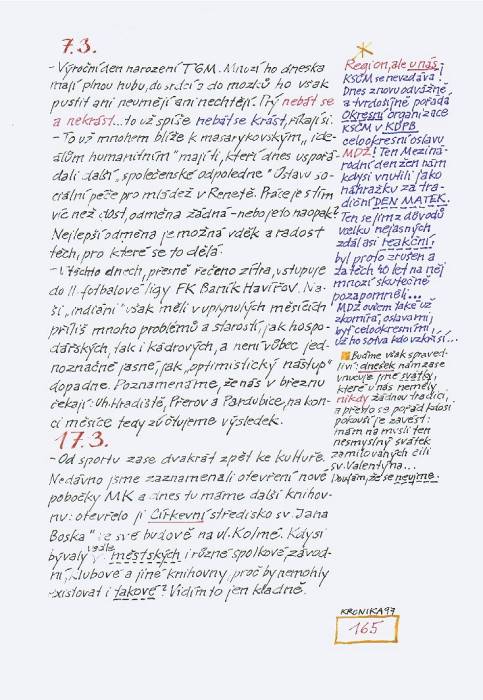 7.3.
- Výroční den narození TGM. Mnozí ho dneska
mají plnou hubu, do srdcí a do mozků ho však
pustit ani neumějí ani nechtějí. Prý nebát se
a nekrást... to už spíše nebát se krást, říkají si.
- To už mnohem blíže k masarykovským „ide-
álům humanitním" mají ti, kteří dnes uspořá-
dali další „společenské odpoledne" Ústavu so-
ciální péče pro mládež v Renetě. Práce je s tím
víc než dost, odměna žádná - nebo je to naopak?
Nejlepší odměna je možná vděk a radost
těch, pro které se to dělá.
- V těchto dnech, přesně řečeno zítra, vstupuje
do II. fotbalové ligy FK Baník Havířov. Na-
ši „indiáni" však měli v uplynulých měsících
příliš mnoho problémů a starostí, jak hospo-
dářských, tak i kádrových, a není vůbec jed-
noznačně jasné, jak „optimistický nástup"
dopadne. Poznamenáme, že nás v březnu
čekají: Uh. Hradiště, Přerov a Pardubice, na kon-
ci měsíce tedy zúčtujeme výsledek.
17.3.
- Od sportu zase dvakrát zpět ke kultuře.
Nedávno jsme zaznamenali otevření nové
pobočky MK a dnes tu máme další knihov-
nu: otevřelo ji Církevní středisko sv. Jana
Boska" ve své budově na ul. Kolmé. Kdysi
bývaly vedle městských i různé spolkové, závod-
ní, klubové a jiné knihovny, proč by nemohly
existovat i takové? Vidím to jen kladně.
Region, ale u nás!
KSČM se nevzdává!
Dnes znovu odvážně
a tvrdošíjně pořádá
Okresní organizace
KSČM v KDPB
celookresní oslavu
MDŽ! Ten Meziná-
rodní den žen nám
kdysi vnutili jako
náhražku za tra-
diční DEN MATEK.
Ten se jim z důvodů
vcelku nejasných
zdál asi reakční,
byl proto zrušen a
za těch 40 let na něj
mnozí skutečně
pozapomněli...
MDŽ ovšem také už
zkomírá, oslava míní
být celookresními,
už ho sotva kdo vzkřísí...
Buďme však spraved-
liví: dnešek nám zase
vnucuje jiné svátky,
které u nás neměly
nikdy žádnou tradici,
a přesto se pořád kdosi
pokouší je zavést:
mám na mysli ten
nesmyslný svátek
zamilovaných čili
sv. Valentýna...
Doufám, že se neujme.
KRONIKA 97
165